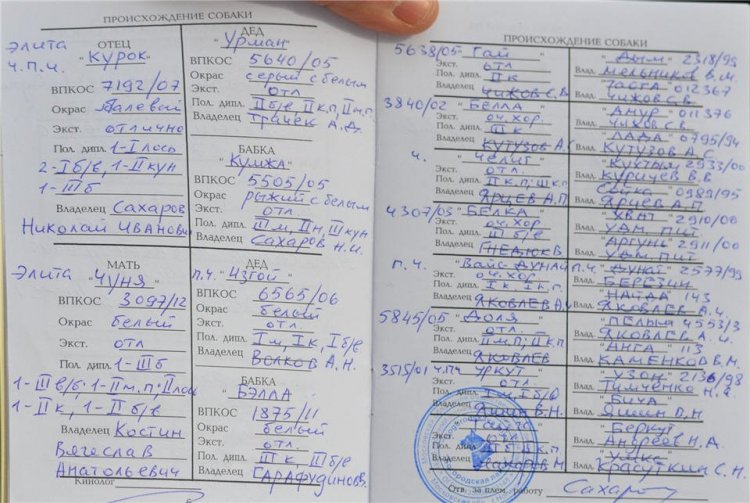 ПРОИСХОЖДЕНИЕ СОБАКИ
Элита
ч.п.ч.
ОТЕЦ
"Курок"
ВПКОС 7192/07
Окрас палевый
Экст. отлично
Пол. дипл. 1-I лось
2-Iб/в, 1-II кун
1-IIIб
Владелец Сахаров
Николай Иванович
ДЕД
"Урман"
ВПКОС 5640/05
Окрас серый с белым
Экст. отл
Пол. дипл. IIб/в, IIк.п, IIм.п.
Владелец А.Д.
БАБКА
"Кумжа"
ВПКОС 5505/05
Окрас рыжий с белым
Экст. отл
Пол. дипл. IIIм, IIн, III кун
Владелец Сахаров Н.И.
Элита
МАТЬ
"Чуня"
ВПКОС 3097/12
Окрас белый
Экст. отл
Пол. дипл. 1-IIIб
1-IIIв/б, 1-IIм.п, II лось
1-IIк, 1-IIб/в
Владелец Костин
Вячеслав
Анатольевич
Кинолог
п.ч.
ДЕД
"Изгой"
ВПКОС 6565/06
Окрас белый
Экст. отл
Пол. дипл. Iм, Iк, Iб/в
Владелец Волков А.Н.
БАБКА
"Бэлла"
ВПКОС 1875/11
Окрас белый
Экст. отл.
Пол. дипл. IIIк, IIIб/в
Владелец
6
ПРОИСХОЖДЕНИЕ СОБАКИ
5638/05 "Гай"
Экст. отл
Пол. дипл. IIк
Владелец Чижов С.В.
"Дым" 2318/99
Влад. Мельников В.М.
"Тайга" 012367
Влад. Чижов С.В.
3840/02 "Белла"
Экст. оч.хор.
Пол. дипл. IIIк
Владелец Кутузов А.С.
"Амур" 011376
Влад. Чижов С.В.
"Лада" 0795/94
Влад. Кутузов А.С.
ч. "Челиг"
Экст. отл.
Пол. дипл. IIк.п; IIIк.п
Владелец Ярцев А.П.
"Кухтым" 2933/00
Влад. В.В
0989/95
Влад. Ярцев А.П.
4307/03 "Белка"
Экст. оч.хор
Пол. дипл. IIIб/в
Владелец
2910/00
Влад. Удм. пит
"Аргунь" 2911/00
Влад. Удм. пит.
п.ч. "Вайс Дунай"
Экст. оч.хор.
Пол. дипл.
Владелец Яковлев А.Ч
п.ч. "Дунай" 2577/99
Влад. Березин
"Найда" 143
Влад. Яковлев А.Ч.
5845/05 "Доля"
Экст. отл.
Пол. дипл. IIм.п; IIк.п
Владелец Яковлев
"Пелым" 4553/3
Влад. Яковлев А.Ч.
"Анга" 113
Влад. Каменков В.М.
3515/01 ч.п.ч "Уркут"
Экст. отл.
Пол. дипл. Iм, Iб/в
Владелец Яшин В.Н.
"Узон" 2136/98
Влад. Тимченко Н.
"Бича"
Влад. Яшин В.Н.
Экст. отл
Пол. дипл.
Владелец
"Беркут"
Влад. Андреев Н.А.
"Умка"
Влад. Красуткин С.Н.
Отв. за плем. работу